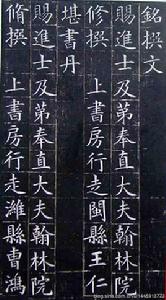 銘撰文
賜進士及第奉直大夫翰林院
修撰 上書房行走閩縣王仁
堪書丹
賜進士及第奉直大夫翰林院
脩撰 上書房行走濰縣曹鴻